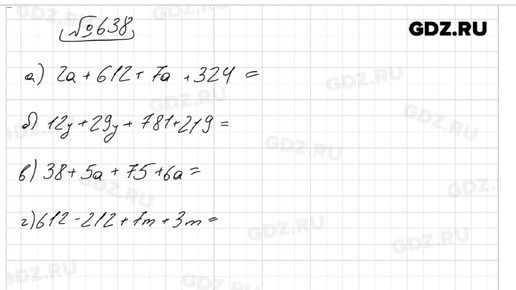 №638
GDZ.RU
а) 2a + 612 + 7a + 324 =
б) 12y + 29y + 781 + 219 =
в) 38 + 5a + 75 + 6a =
г) 612 - 212 + 7m + 3m =
GDZ.RU
GDZ.RU
GDZ.RU
GDZ.RU
GDZ.RU
GDZ.RU
GDZ.RU